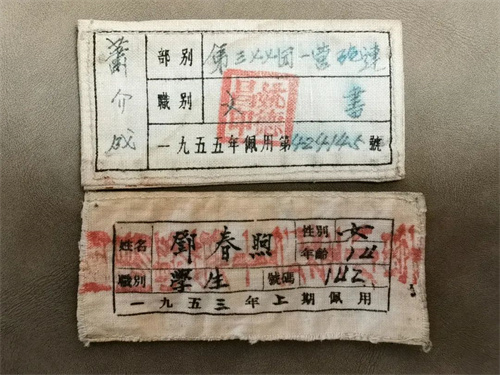 蕭介成
部別 第三××团一营砲連
職別 文書
一九五五年佩用第424145號
姓名 鄧春照 性別 女
年齡 14
職別 學生 號碼 142
一九五三年上期佩用